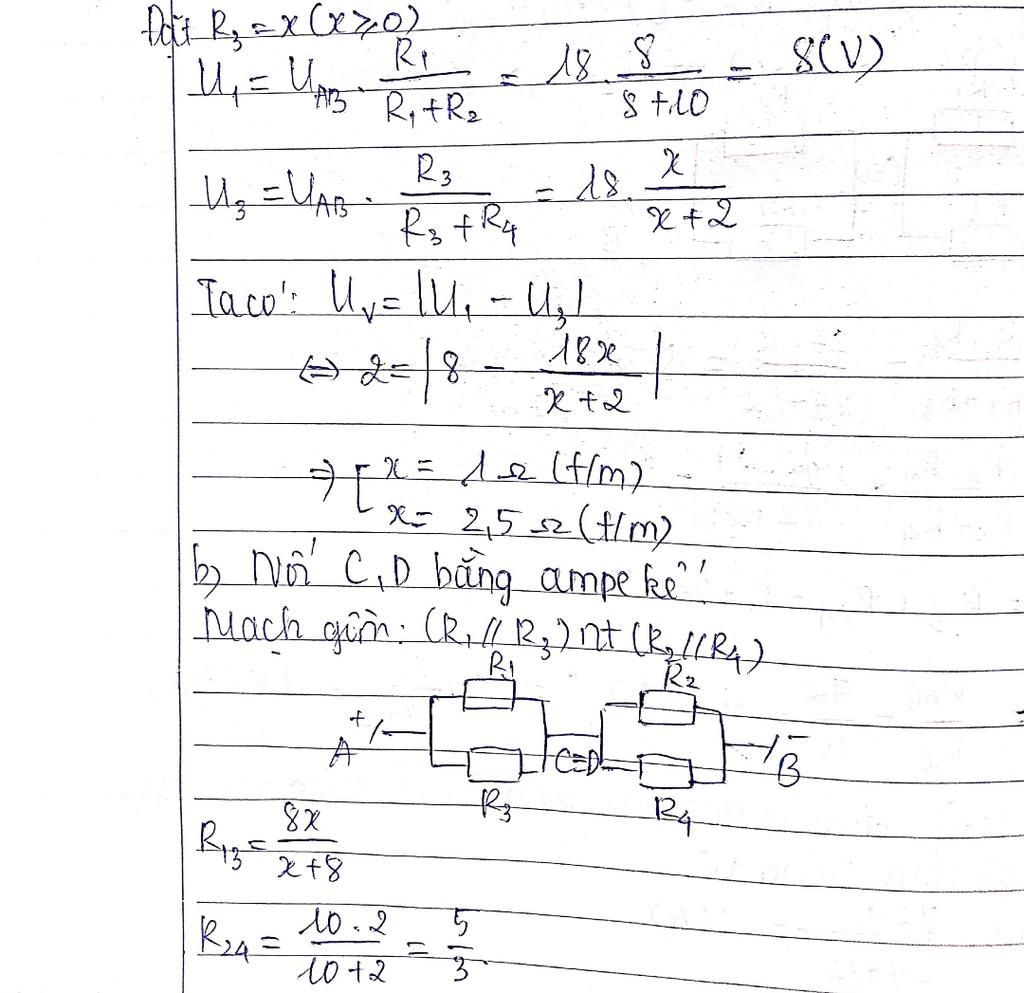 Đặt R₃ = x (x ≥ 0)
U₁ = U_AB . R₁/(R₁+R₂) = 18 . 8/(8+10) = 8(V)
U₃ = U_AB . R₃/(R₃+R₄) = 18 . x/(x+2)
Ta có: U_V = |U₁ - U₃|
⇔ 2 = |8 - 18x/(x+2)|
⇒ [ x = 1 Ω (t/m)
x = 2,5 Ω (t/m)
b, Nối C, D bằng ampe kế
Mạch gồm: (R₁ // R₃) nt (R₂ // R₄)
R₁ R₂
A + C≡D - B
R₃ R₄
R₁₃ = 8x/(x+8)
R₂₄ = (10.2)/(10+2) = 5/3.